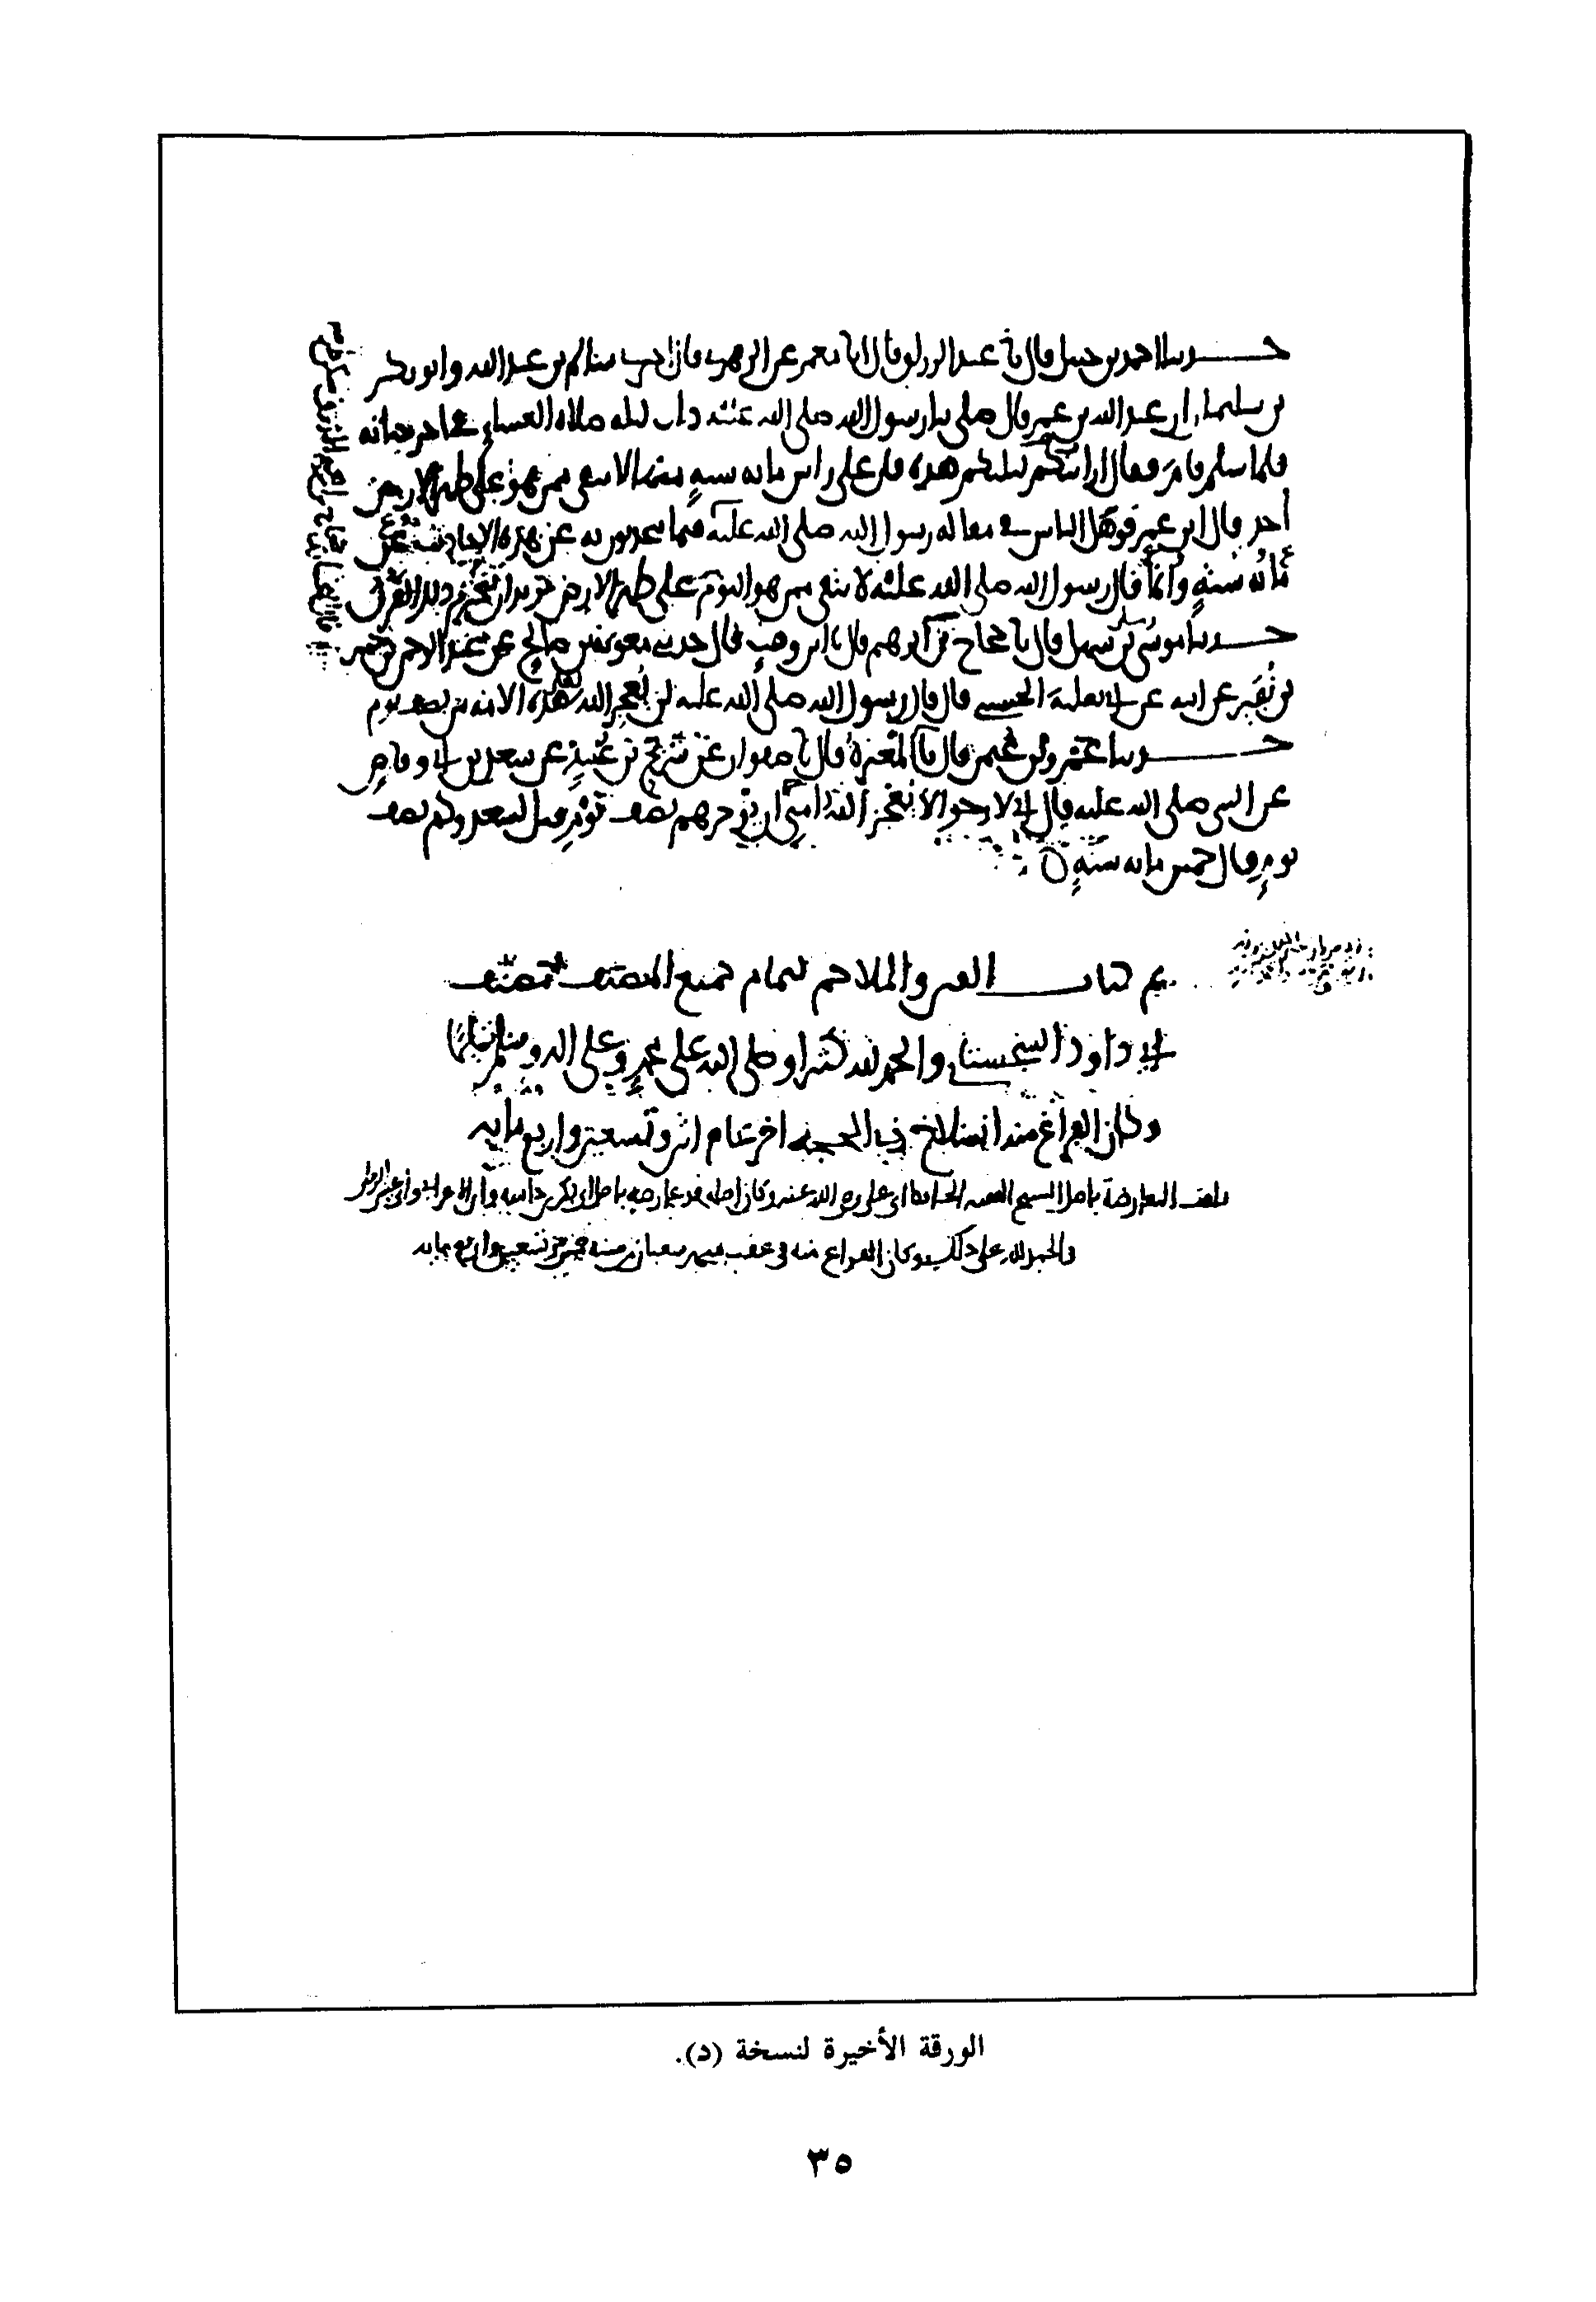 حدثنا احمد بن حنبل قال نا عبد الرزاق قال انا معمر عن الزهري قال اخبرني سالم بن عبد الله وابو بكر
بن سليمان ان عبد الله بن عمر قال صلى بنا رسول الله صلى الله عليه ذات ليلة صلاة العشاء في اخر حياته
فلما سلم قام فقال ارايتكم ليلتكم هذه فان على راس مائة سنة منها لا يبقى ممن هو على ظهر الارض
أحد قال ابن عمر فوهل الناس في مقالة رسول الله صلى الله عليه فيما يتحدثون به عن هذه الاحاديث عن
مائة سنة وانما قال رسول الله صلى الله عليه لا يبقى ممن هو اليوم على ظهر الارض يريد ان ينخرم ذلك القرن
حدثنا موسى بن سهل قال نا حجاج بن ابرهيم قال نا ابن وهب قال حدثني معوية بن صالح عن عبد الرحمن بن جبير
بن نفير عن ابيه عن ابي ثعلبة الخشني قال قال رسول الله صلى الله عليه لن يعجز الله هذه الامة من نصف يوم
حدثنا عمرو بن عثمن قال نا المغيرة قال نا صفوان عن شريح بن عبيد عن سعد بن ابي وقاص
عن النبي صلى الله عليه قال اني لارجو الا يعجز الله امتي ان يؤخرهم نصف يوم قيل لسعد وكم نصف
يوم قال خمس مائة سنة
تم كتاب الفتن والملاحم بتمام جميع المصنف تصنيف
ابي داود السجستاني والحمد لله كثيرا وصلى الله على محمد وعلى اله وسلم تسليما
وكان الفراغ منه انسلاخ ذي الحجة اخر عام اثنين وتسعين واربع مايه
بلغت المعارضة باصل الشيخ الفقيه الحافظ ابي علي رضي الله عنه وكان اصله قد عارضه باصل ابي بكر بن داسة
والحمد لله على ذلك وكان الفراغ منه في عقب شهر شعبان من سنة خمس وتسعين واربع مايه
الورقة الأخيرة لنسخة (د).
٣٥